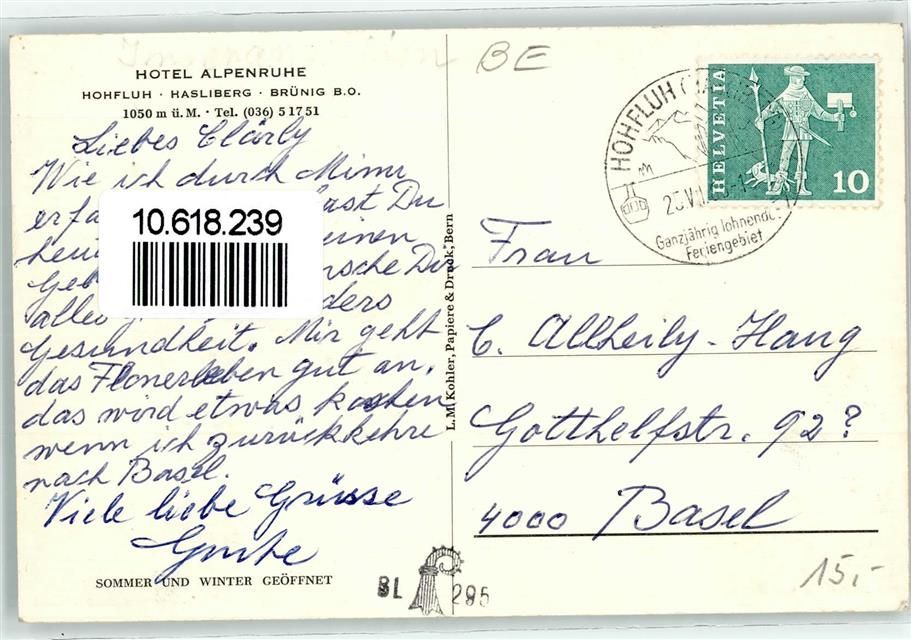 BE
HOTEL ALPENRUHE
HOFLUH · HASLIBERG · BRÜNIG B.O.
1050 m ü. M. · Tel. (036) 5 17 51
Liebes Clärly
Wie ich durch Mimi
erfa ast Du
heu einen
Geb nsche Dir
alles ders
Gesundheit. Mir geht
das Flonerleben gut an,
das wird etwas kosten
wenn ich zurückkehre
nach Basel.
Viele liebe Grüsse
10.618.239
SOMMER UND WINTER GEÖFFNET
L.M. Kohler, Papiere & Druck, Bern
HELVETIA
10
HOHFLUH
Ganzjährig lohnend
Feriengebiet
Frau
C. Allheily-Hang
Gotthelfstr. 92?
4000 Basel
BL 295
15,-